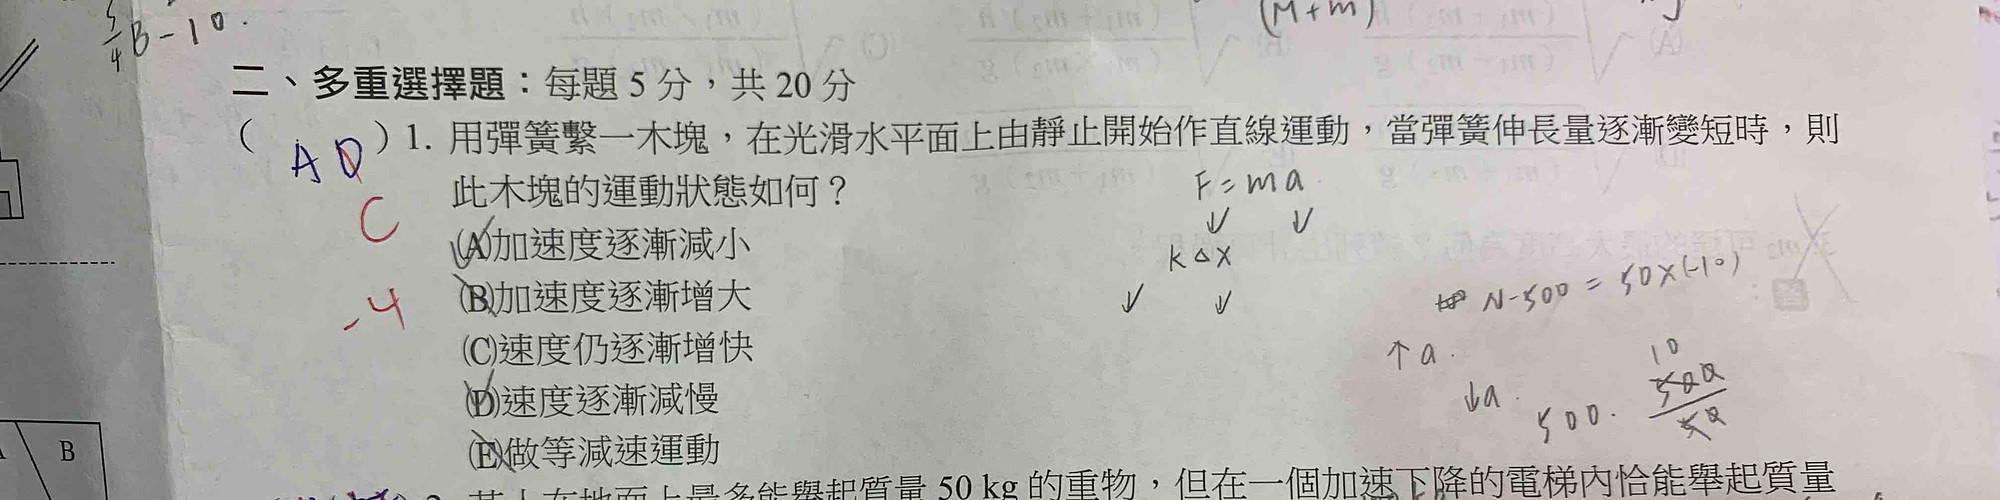 5/4 B - 10.
(M+m)
二、多重選擇題：每題 5 分，共 20 分
( A D ) 1. 用彈簧繫一木塊，在光滑水平面上由靜止開始作直線運動，當彈簧伸長量逐漸變短時，則
此木塊的運動狀態如何？
F = ma.
C
↓ ↓
(A)加速度逐漸減小
K △ X
(B)加速度逐漸增大
-4
↓ ↓
N-500 = 50×(-10)
(C)速度仍逐漸增快
↑a.
10
(D)速度逐漸減慢
↓a.
500.
500/50
(E)做等減速運動
B
50 kg 的重物，但在一個加速下降的電梯內恰能舉起質量